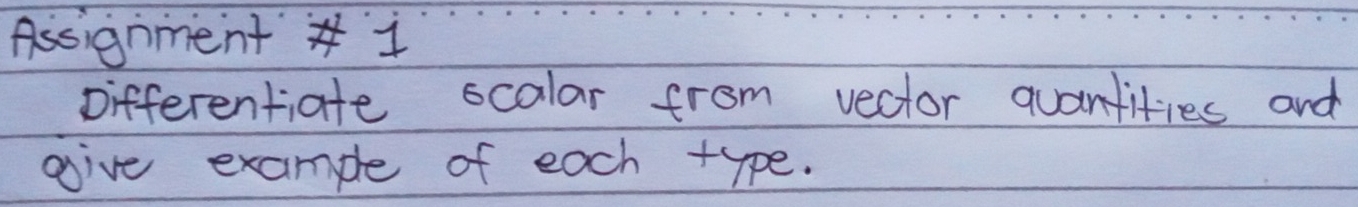 Assignment # 1
Differentiate scalar from vector quantities and
give example of each type.